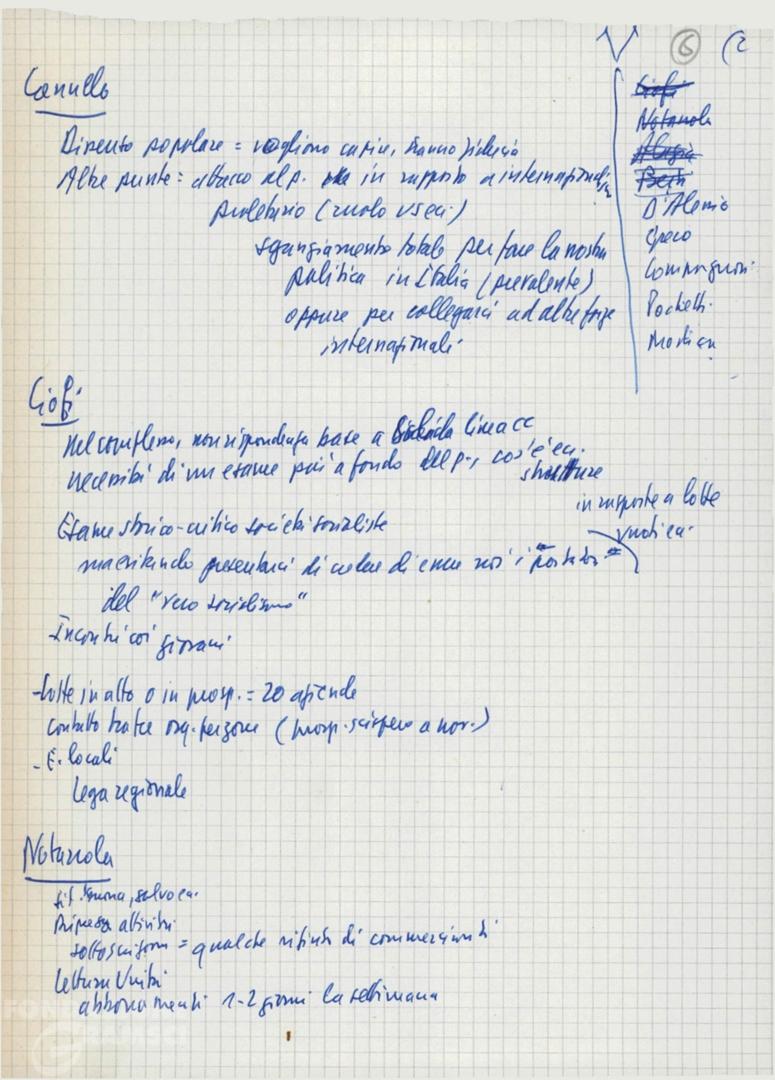 6 (2
Canullo
Dissenso popolare = vogliono capire, hanno fiducia
Altre punte: attacco al p. in rapporto a internazional.
proletario (ruolo URSS)
sganciamento totale per fare la nostra
politica in Italia (prevalente)
oppure per collegarci ad altre forze
internazionali
Ciofi
Notarola
D'Alessio
Greco
Compagnoni
Pochetti
Ciofi
Nel complesso, non rispondenza base a linea CC
necessità di un esame più a fondo del p., cos'è
strutture
in rapporto a lotte
Esame storico-critico società socialiste
ma evitando presentarci di credere di essere noi i "portatori"
del "vero socialismo"
Incontri coi giovani
- Lotte in atto o in prosp. = 20 aziende
contatto tra
(prosp. sciopero a nov.)
- E. locali
Lega regionale
Notarola
Ripresa attività
sottoscrizion = qualche rifiuto di commercianti
Lettura Unità
abbonamenti 1-2 giorni la settimana
FONDAZIONE
GRAMSCI